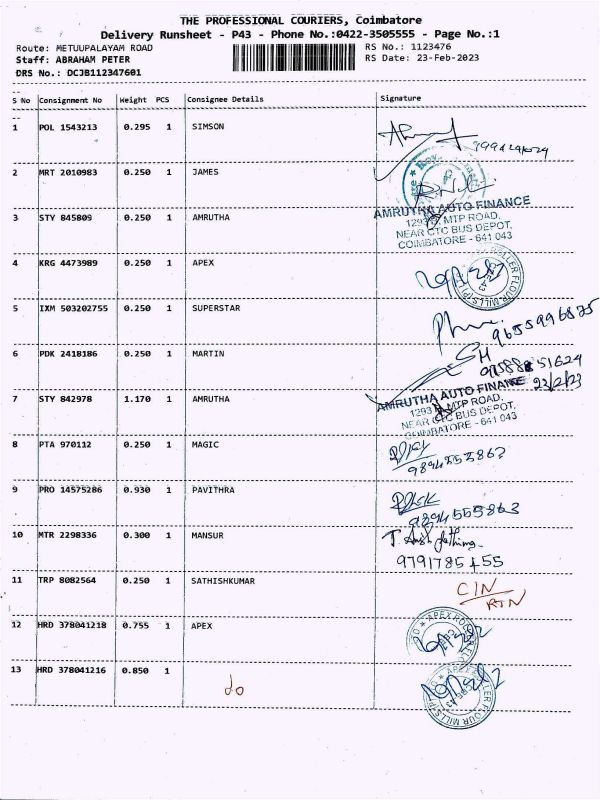 THE PROFESSIONAL COURIERS, Coimbatore
Delivery Runsheet - P43 - Phone No.:0422-3505555 - Page No.:1
Route: METUUPALAYAM ROAD
RS No.: 1123476
Staff: ABRAHAM PETER
RS Date: 23-Feb-2023
DRS No.: DCJB112347601
S No Consignment No Weight PCS Consignee Details Signature
1 POL 1543213 0.295 1 SIMSON
2 MRT 2010983 0.250 1 JAMES
3 STY 845809 0.250 1 AMRUTHA
AMRUTHA AUTO FINANCE
MTP ROAD,
NEAR CTC BUS DEPOT,
COIMBATORE - 641 043
4 KRG 4473989 0.250 1 APEX
ROLLER FLOUR MILLS (P)
5 IXM 503202755 0.250 1 SUPERSTAR
9655996835
6 PDK 2418186 0.250 1 MARTIN
SH
51624
23/2/23
7 STY 842978 1.170 1 AMRUTHA
AMRUTHA AUTO FINANCE
MTP ROAD,
NEAR CTC BUS DEPOT,
COIMBATORE - 641 043
8 PTA 970112 0.250 1 MAGIC
9894555863
9 PRO 14575286 0.930 1 PAVITHRA
9894555863
10 MTR 2298336 0.300 1 MANSUR
9791785455
11 TRP 8082564 0.250 1 SATHISHKUMAR
CIN
RTN
12 HRD 378041218 0.755 1 APEX
APEX ROLLER
13 HRD 378041216 0.850 1 do
APEX ROLLER FLOUR MILLS (P)